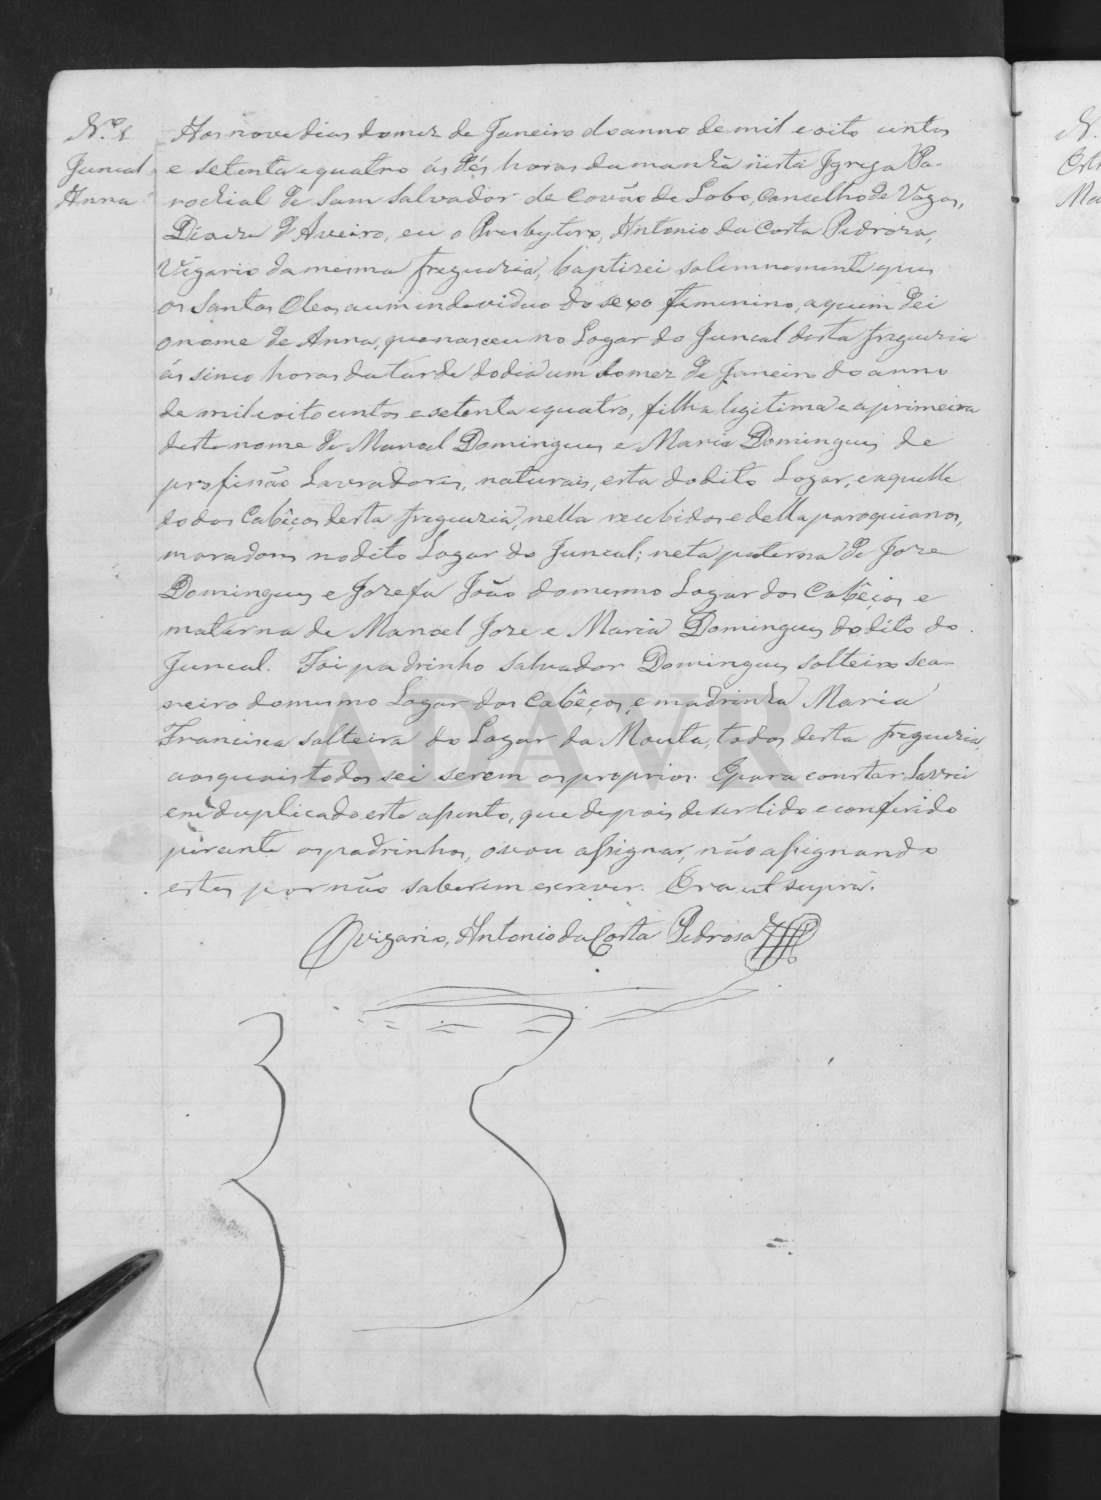 N.º 1
Juncal
Anna
Aos nove dias do mez de Janeiro do anno de mil e oito centos
e setenta e quatro ás dés horas da manhã nesta Igreja Pa-
rochial de Sam Salvador de Covão de Lobo, Concelho de Vagos,
Diocese d'Aveiro, eu o Presbytero, Antonio da Costa Pedrosa,
Vigario da mesma freguezia, baptizei solemnemente e puz
os Santos Oleos a um individuo do sexo femenino, a quem dei
o nome de Anna, que nasceu no Logar do Juncal desta freguezia
ás sinco horas da tarde do dia um do mez de Janeiro do anno
de mil e oito centos e setenta e quatro, filha legitima e a primeira
deste nome de Manoel Domingues e Maria Domingues de
profissão Lavradores, naturais, esta do dito Logar, e aquelle
do dos Cabêços desta freguezia, nella recebidos e della paroquianos,
moradores no dito Logar do Juncal; neta paterna de Joze
Domingues e Jozefa João do mesmo Logar dos Cabêços e
materna de Manoel Joze e Maria Domingues do dito do
Juncal. Foi padrinho Salvador Domingues solteiro sea-
reiro do mesmo Logar dos Cabêços, e madrinha Maria
Francisca solteira do Logar da Mouta, todos desta freguezia,
aos quais todos sei serem os proprios. E para constar Lavrei
em duplicado este assento, que depois de ser lido e conferido
perante os padrinhos, o vou assignar, não assignando
estes por não saberem escrever. Era ut supra.
O vigario, Antonio da Costa Pedrosa
ADAVR
N.
Ma